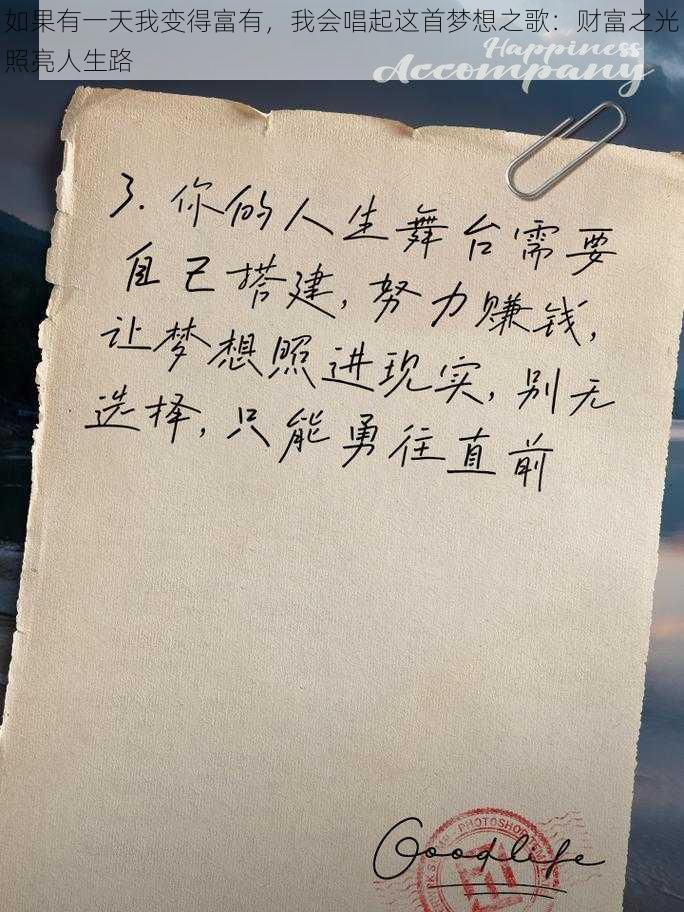 如果有一天我变得富有，我会唱起这首梦想之歌：财富之光
照亮人生路
Happiness
Accompany
3. 你的人生舞台需要
自己搭建，努力赚钱，
让梦想照进现实，别无
选择，只能勇往直前
PHOTOSHOP
Goodlife